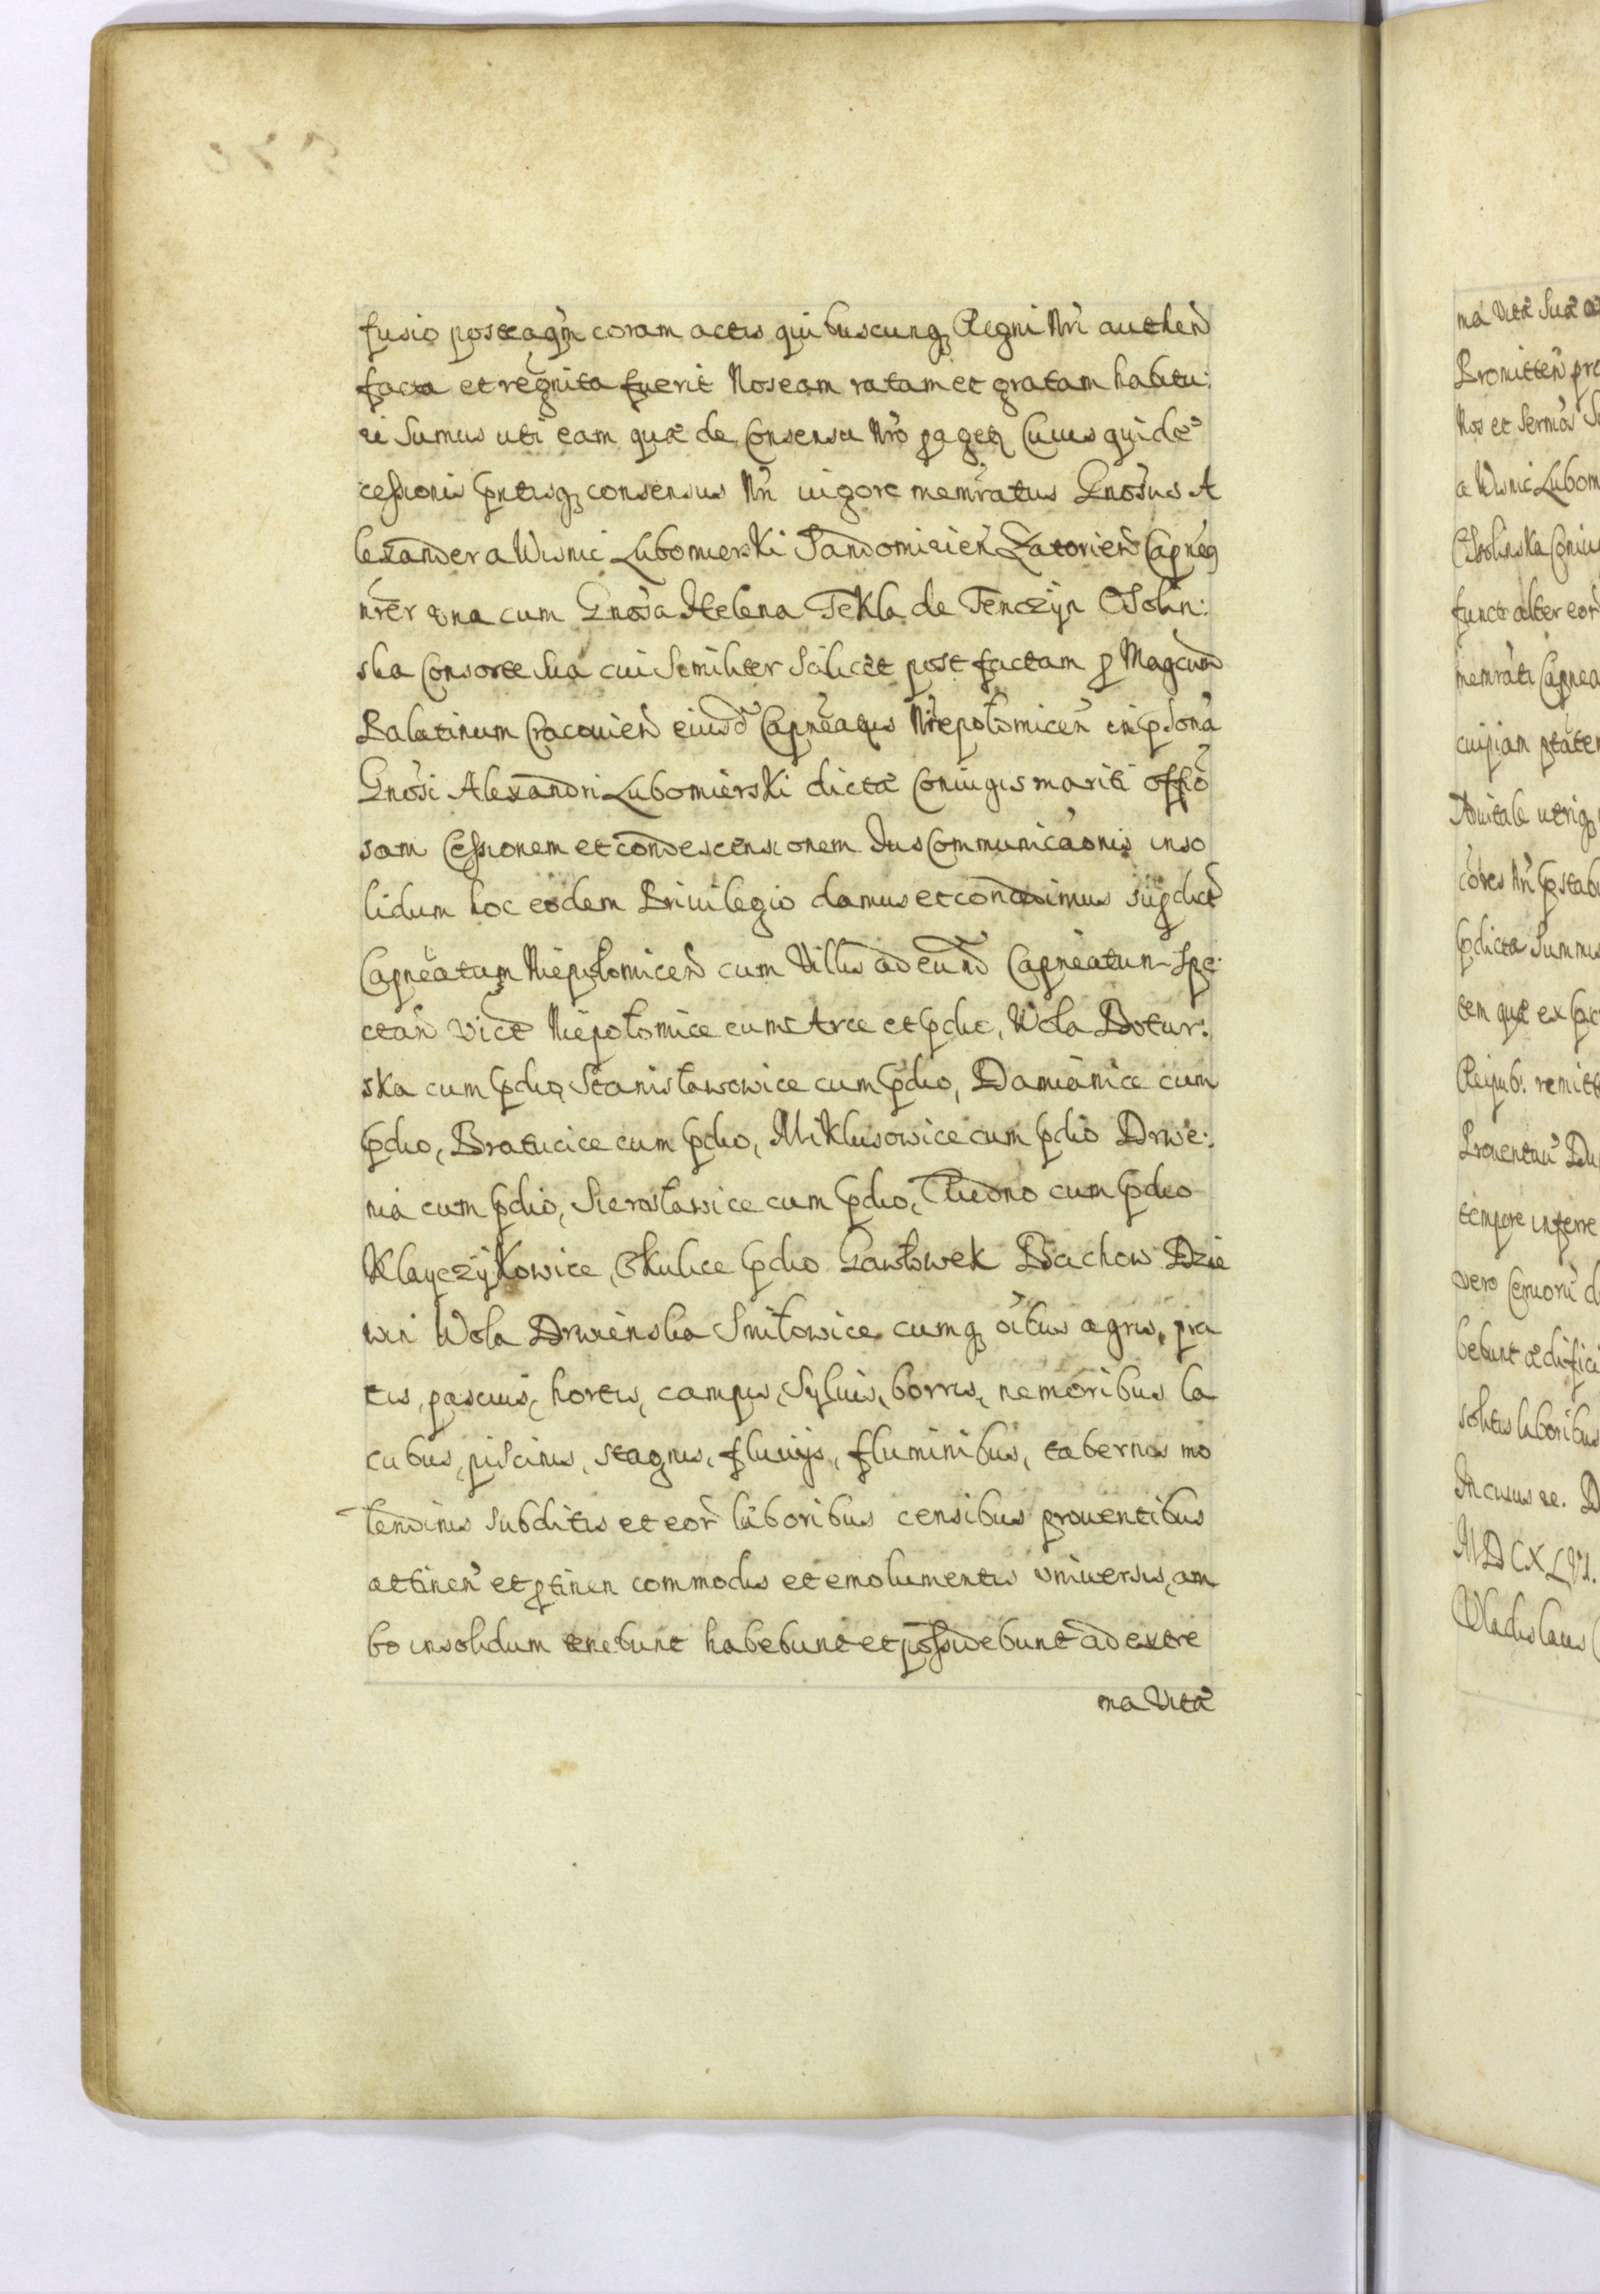 fusio posteaqm̃ coram actis quibuscunq; Regni Nri authen
facta et recgnita fuerit Nos eam ratam et gratam habitu:
ri Sumus uti eam quæ de Consensu Nro Cuius quidẽ
cessionis pntisq; consensus Nri uigore memratus Gnosus A
lexander a Wisnic Lubomierski Sandomirien Zatorien Capneq
nrer vna cum Gnosa Helena Tekla de Tenczyn Ossolin:
ska Consorte sua cui Similiter Scilicet post factam p Magcum
Palatinum Cracouien eiusd Capneatus Niepołomicen in psona
Gnosi Alexandri Lubomierski dictæ Coniugis mariti offio
sam Cessionem et condescensionem Ius Communicaonis inso
lidum hoc eodem Priuilegio damus et concedimus supdict
Capneatum Niepołomicen cum Villis ad eund Capneatum Spe:
ctan vict Niepołomice cum Arce et pdio, Wola Botur:
ska cum pdio, Stanisławowice cum pdio, Damianice cum
pdio, Bratucice cum pdio, Miklusowice cum pdio Drwe:
nia cum pdio, Sierosławice cum pdio, Cudno cum pdio
Klayczÿkowice, Okulice pdio Gawłowek Bachow Dzie
win Wola Drwienska Smiłowice cumq; oibus agris, pra
tis, pascuis, hortis, campis, Syluis, borris, nemoribus la
cubus, piscinis, stagnis, fluuijs, fluminibus, tabernis mo
lendinis subditis et eor laboribus censibus prouentibus
attinen et ptinen commodis et emolumentis vniuersis, am
bo insolidum tenebunt habebunt et possidebunt ad extre
ma Vitæ
ma Vitæ Suæ
Promitten
Nos et Sermos
a Wisnic Lubom
Ossolinska Coniu
funct alter eor
memrati Capnea
cuipiam ptatem
Aduitale utriq;
pdicta Summis
tem quæ ex
Reipub: remitt
Prouentuũ
tempore inferre
vero
bebunt ædifici
solitis laboribus
In cuius re. D
MDCXLVI.
Vladislaus